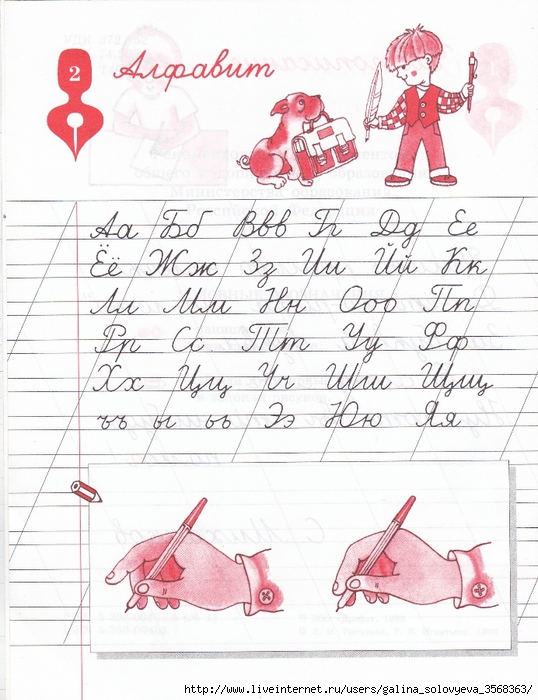 2
Алфавит
Аа Бб Ввв Гг Дд Ее
Ёё Жж Зз Ии Йй Кк
Лл Мм Нн Ооо Пп
Рр Сс Тт Уу Фф
Хх Цц Чч Шш Щщ
ъъ ы ьь Ээ Юю Яя
http://www.liveinternet.ru/users/galina_solovyeva_3568363/